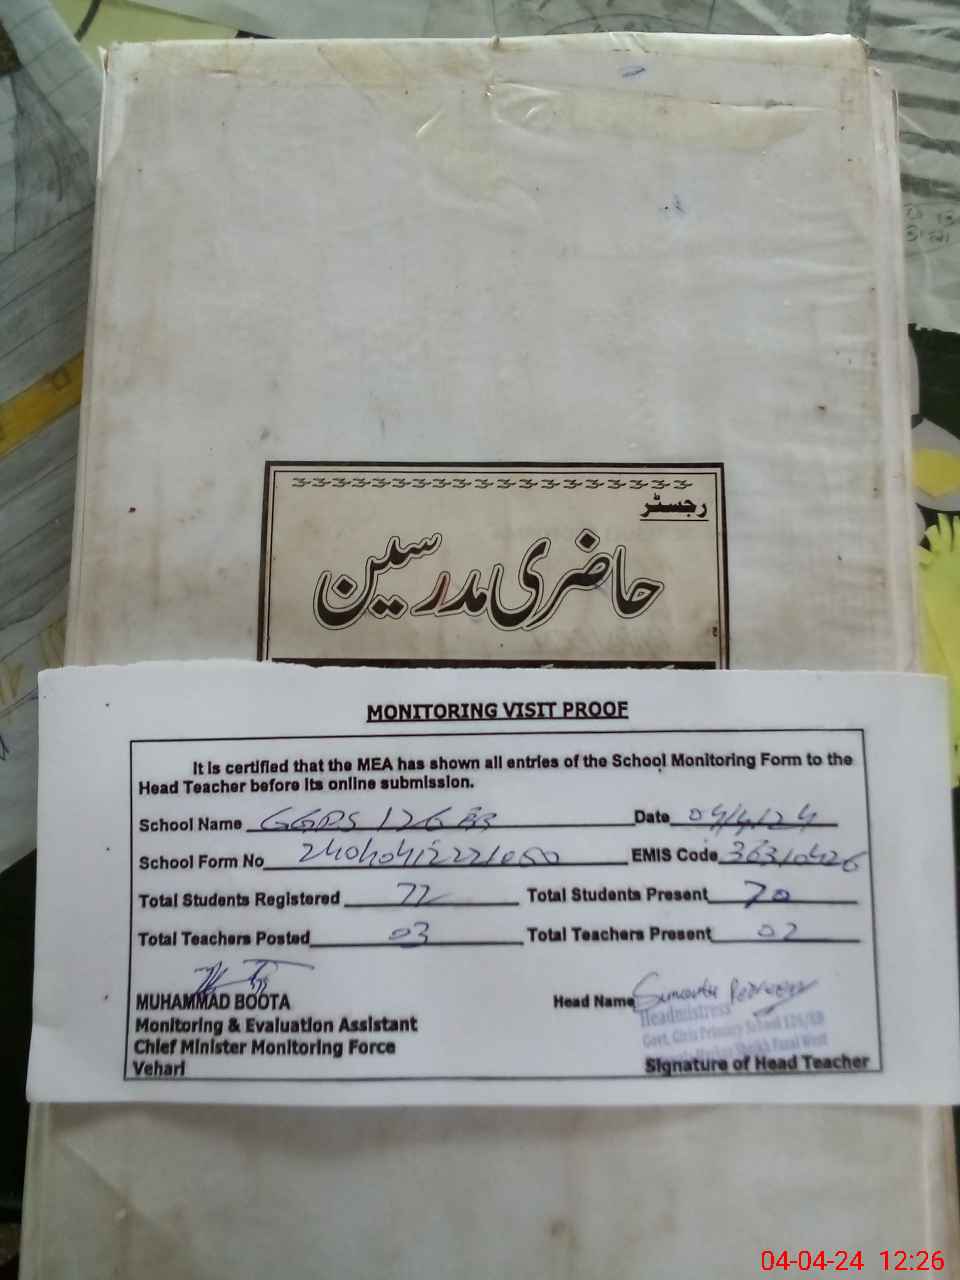 رجسٹر
حاضری مدرسین
MONITORING VISIT PROOF
It is certified that the MEA has shown all entries of the School Monitoring Form to the
Head Teacher before its online submission.
School Name GGPS 126 EB Date 04/4/24
School Form No 24040412221050 EMIS Code 36310426
Total Students Registered 72 Total Students Present 70
Total Teachers Posted 03 Total Teachers Present 02
MUHAMMAD BOOTA Head Name
Headmistress
Monitoring & Evaluation Assistant
Govt. Girls Primary School 126/EB
Chief Minister Monitoring Force
Vehari Signature of Head Teacher
04-04-24 12:26